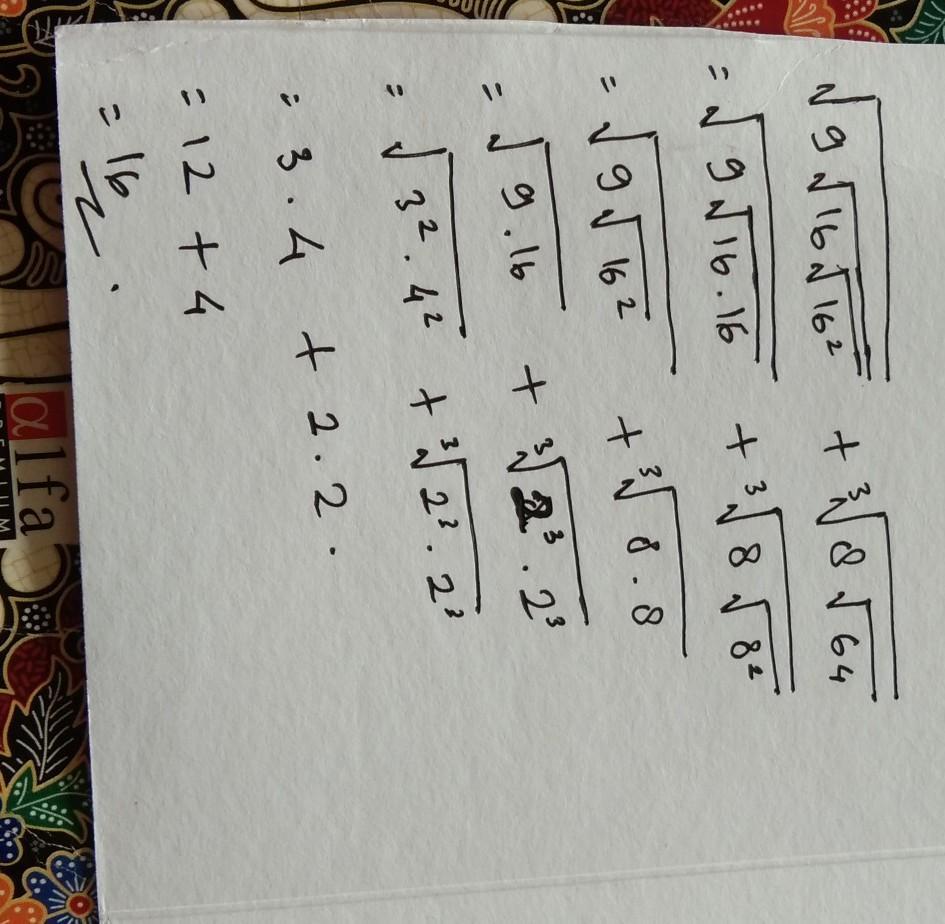 √(9√(16√(16²))) + ³√(8√(64))
= √(9√(16.16)) + ³√(8√(8²))
= √(9√(16²)) + ³√(8.8)
= √(9.16) + ³√(2³.2³)
= √(3².4²) + ³√(2³.2³)
= 3.4 + 2.2.
= 12 + 4
= 16.
αlfa